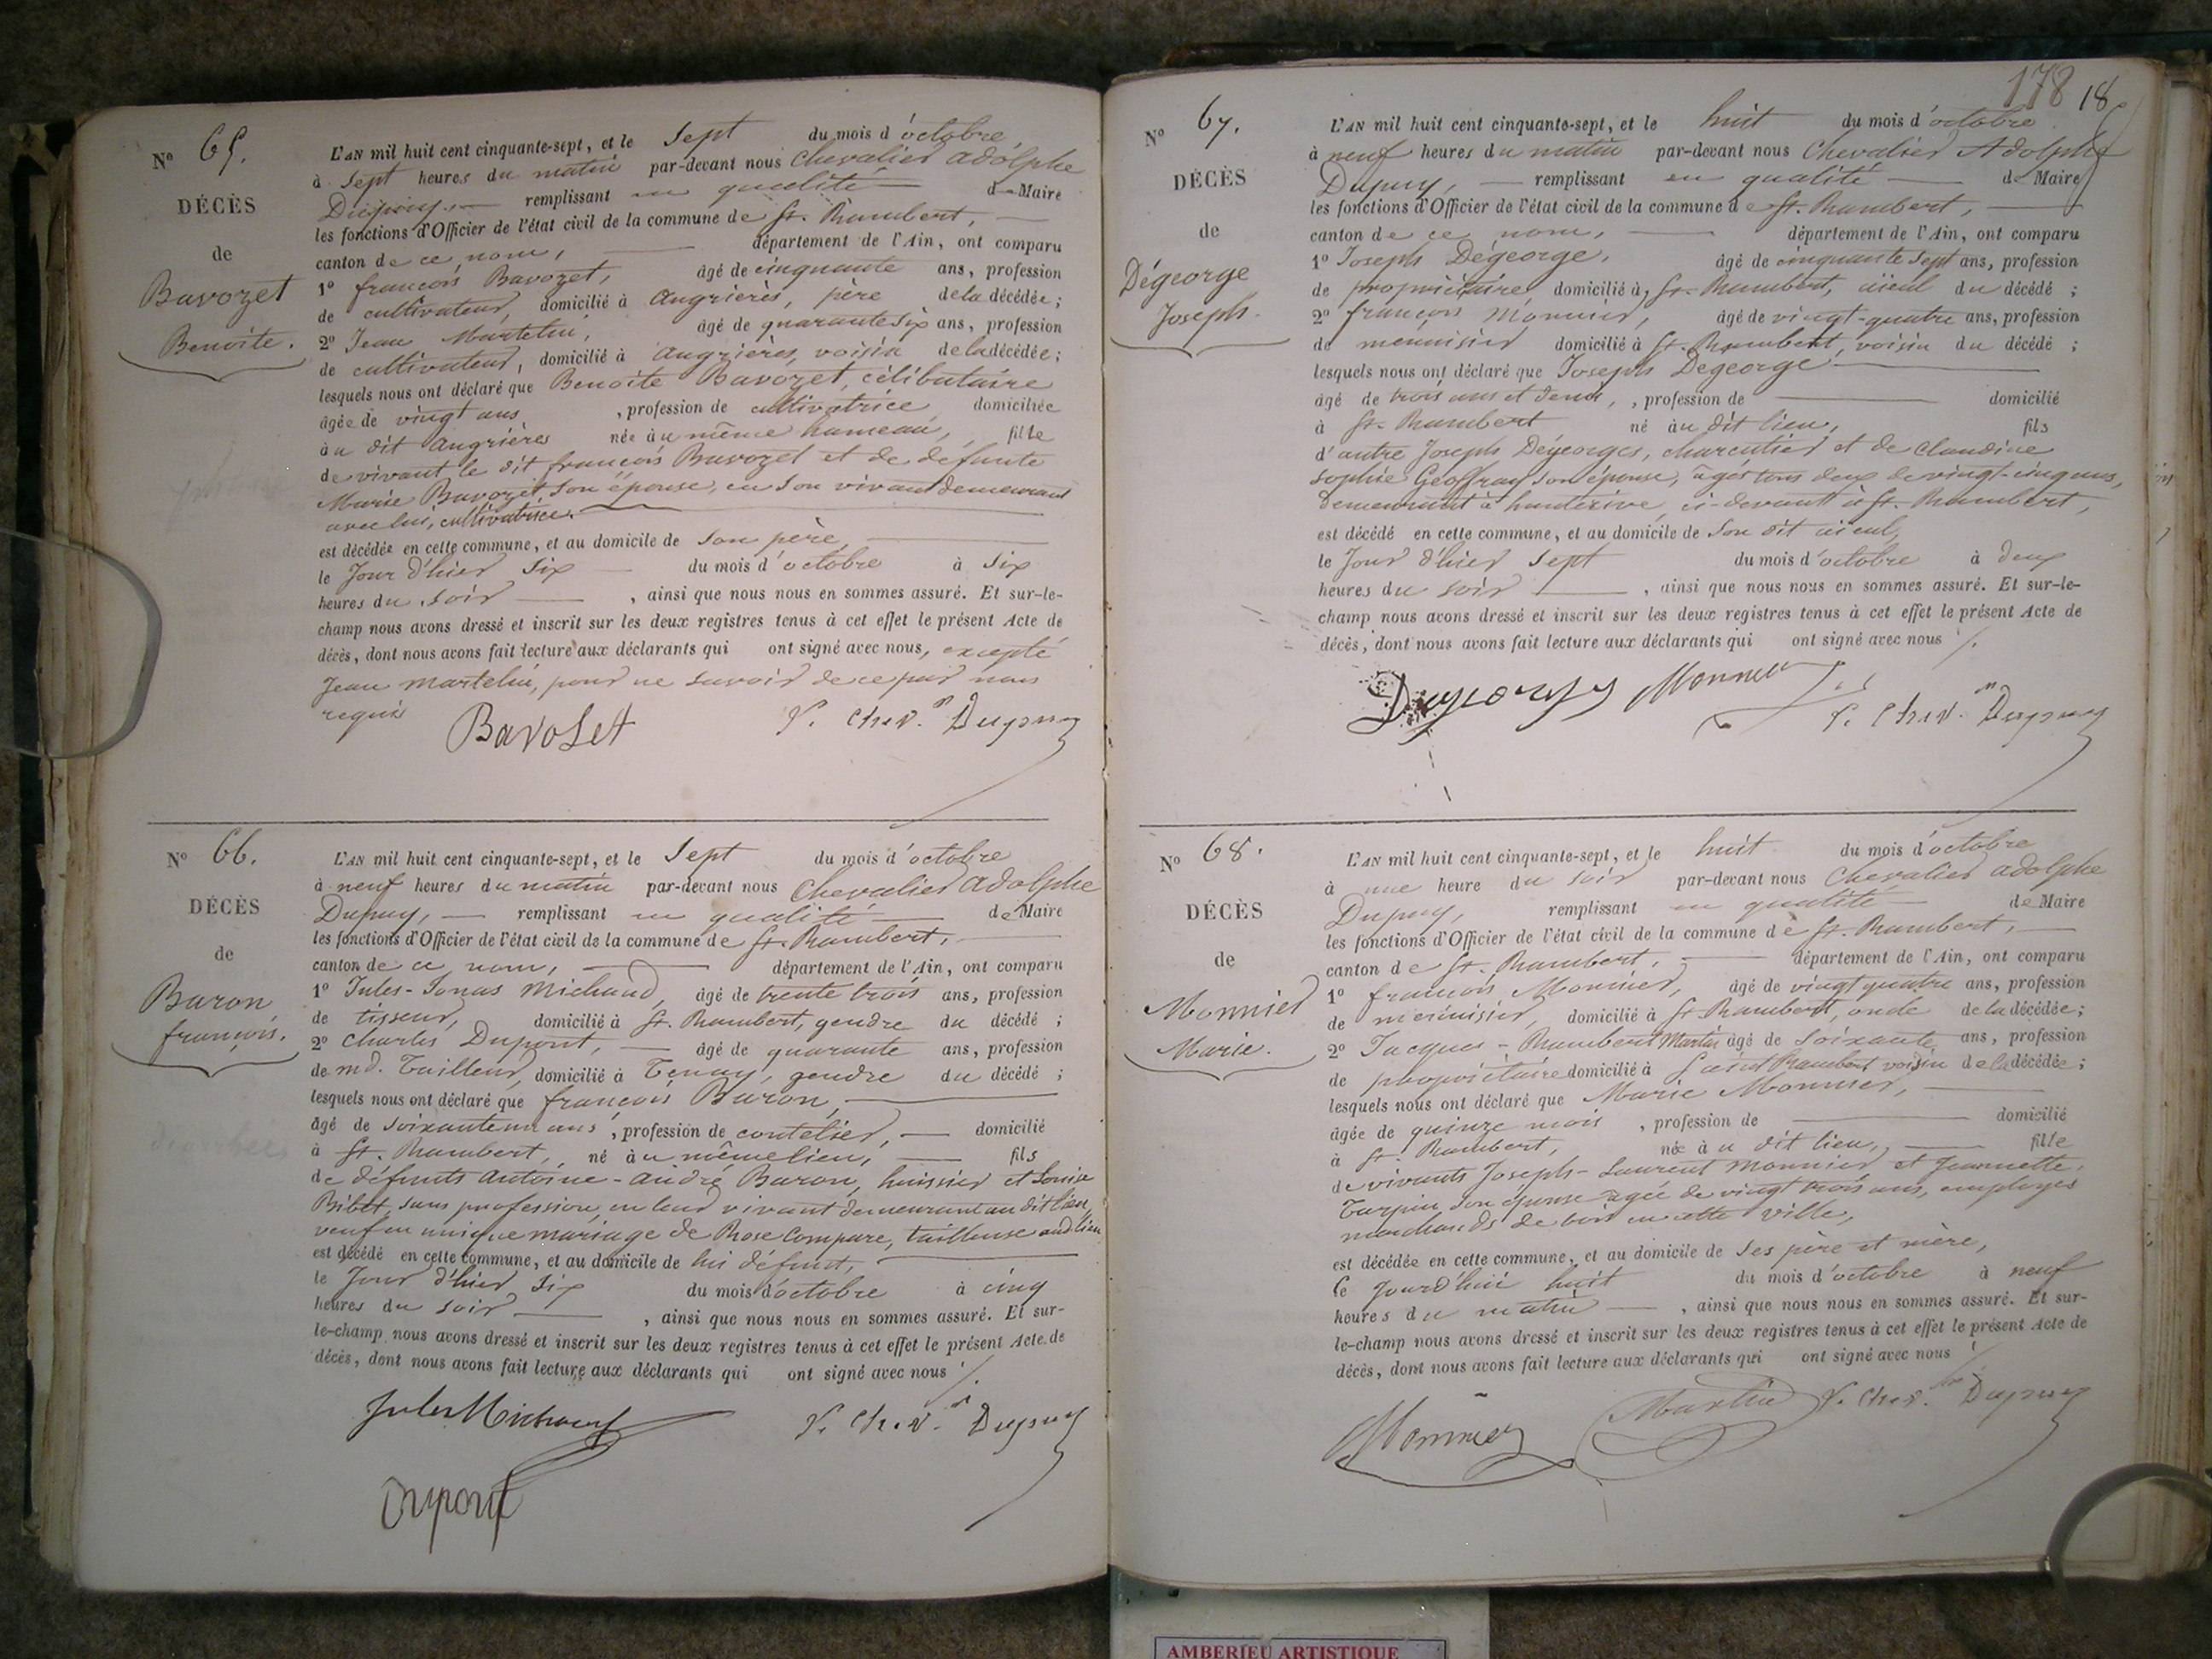 Nº 65.
DÉCÈS
de
Bavozet
Benoite.
L'AN mil huit cent cinquante-sept, et le Sept du mois d'octobre
à Sept heures du matin par-devant nous Chevalier Adolphe
Dupuy, remplissant en qualité de Maire
les fonctions d'Officier de l'état civil de la commune de St. Rambert,
canton de ce nom, département de l'Ain, ont comparu
1º françois Bavozet, âgé de cinquante ans, profession
de cultivateur, domicilié à Angrières, père de la décédée;
2º Jean Martelin, âgé de quarante six ans, profession
de cultivateur, domicilié à Angrières, voisin de la décédée;
lesquels nous ont déclaré que Benoite Bavozet, célibataire
âgée de vingt ans, profession de cultivatrice domiciliée
à u dit Angrières née à u même hameau, fille
de vivant le dit françois Bavozet et de défunte
Marie Bavozet son épouse, en son vivant demeurant
avec lui, cultivatrice.
est décédée en cette commune, et au domicile de son père,
le Jour d'hier Six du mois d'octobre à Six
heures du soir, ainsi que nous nous en sommes assuré. Et sur-le-
champ nous avons dressé et inscrit sur les deux registres tenus à cet effet le présent Acte de
décès, dont nous avons fait lecture aux déclarants qui ont signé avec nous, excepté
Jean Martelin, pour ne savoir de ce par nous
requis
Bavoset V. Chev. Dupuy
Nº 66.
DÉCÈS
de
Baron
françois.
L'AN mil huit cent cinquante-sept, et le Sept du mois d'octobre
à neuf heures du matin par-devant nous Chevalier Adolphe
Dupuy, remplissant en qualité de Maire
les fonctions d'Officier de l'état civil de la commune de St. Rambert,
canton de ce nom, département de l'Ain, ont comparu
1º Jules-Jonas Michaud, âgé de trente trois ans, profession
de tisseur, domicilié à St. Rambert, gendre du décédé;
2º Charles Dupont, âgé de quarante ans, profession
de md. Tailleur, domicilié à Tenay, gendre du décédé;
lesquels nous ont déclaré que françois Baron,
âgé de soixante un ans, profession de coutelier, domicilié
à St. Rambert, né à u même lieu, fils
de défunts Antoine-André Baron, huissier et Louise
Bibet, sans profession, en leur vivant demeurant au dit lieu,
veuf en unique mariage de Rose Compare, tailleuse aud. lieu
est décédé en cette commune, et au domicile de lui défunt,
le Jour d'hier Six du mois d'octobre à cinq
heures du soir, ainsi que nous nous en sommes assuré. Et sur-
le-champ nous avons dressé et inscrit sur les deux registres tenus à cet effet le présent Acte de
décès, dont nous avons fait lecture aux déclarants qui ont signé avec nous
Jules Michaud V. Chev. Dupuy
Dupont
178 18
Nº 67.
DÉCÈS
de
Dégeorge
Joseph.
L'AN mil huit cent cinquante-sept, et le huit du mois d'octobre
à neuf heures du matin par-devant nous Chevalier Adolphe
Dupuy, remplissant en qualité de Maire
les fonctions d'Officier de l'état civil de la commune de St. Rambert,
canton de ce nom, département de l'Ain, ont comparu
1º Joseph Dégeorge, âgé de cinquante sept ans, profession
de propriétaire, domicilié à St. Rambert, aïeul du décédé;
2º françois Monnier, âgé de vingt-quatre ans, profession
de menuisier domicilié à St. Rambert, voisin du décédé;
lesquels nous ont déclaré que Joseph Dégeorge
âgé de trois ans et demi, profession de domicilié
à St. Rambert né à u dit lieu, fils
d'autre Joseph Dégeorges, charcutier et de Claudine
Sophie Geoffray son épouse, âgés tous deux de vingt-cinq ans,
demeurant à hauterive, ci-devant à St. Rambert,
est décédé en cette commune, et au domicile de Son dit aïeul,
le Jour d'hier Sept du mois d'octobre à deux
heures du soir, ainsi que nous nous en sommes assuré. Et sur-le-
champ nous avons dressé et inscrit sur les deux registres tenus à cet effet le présent Acte de
décès, dont nous avons fait lecture aux déclarants qui ont signé avec nous
Monnier V. Chev. Dupuy
Nº 68.
DÉCÈS
de
Monnier
Marie.
L'AN mil huit cent cinquante-sept, et le huit du mois d'octobre
à une heure du soir par-devant nous Chevalier Adolphe
Dupuy, remplissant en qualité de Maire
les fonctions d'Officier de l'état civil de la commune de St. Rambert,
canton de St. Rambert, département de l'Ain, ont comparu
1º françois Monnier, âgé de vingt quatre ans, profession
de menuisier, domicilié à St. Rambert, oncle de la décédée;
2º Jacques-Rambert Martin âgé de Soixante ans, profession
de propriétaire domicilié à Saint Rambert voisin de la décédée;
lesquels nous ont déclaré que Marie Monnier,
âgée de quinze mois, profession de domicilié
à St. Rambert, née à u dit lieu, fille
de vivants Joseph-Laurent Monnier et Jeannette
Turpin son épouse âgée de vingt trois ans, employés
marchands de bois en cette ville,
est décédée en cette commune, et au domicile de Ses père et mère,
le Jourd'hui huit du mois d'octobre à neuf
heures du matin, ainsi que nous nous en sommes assuré. Et sur-
le-champ nous avons dressé et inscrit sur les deux registres tenus à cet effet le présent Acte de
décès, dont nous avons fait lecture aux déclarants qui ont signé avec nous
Monnier Martin V. Chev. Dupuy
AMBERIEU ARTISTIQUE